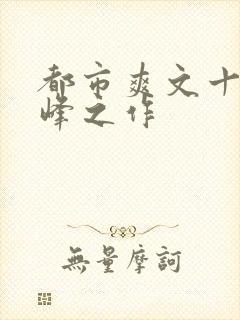 都市爽文十
峰之作
無量摩訶